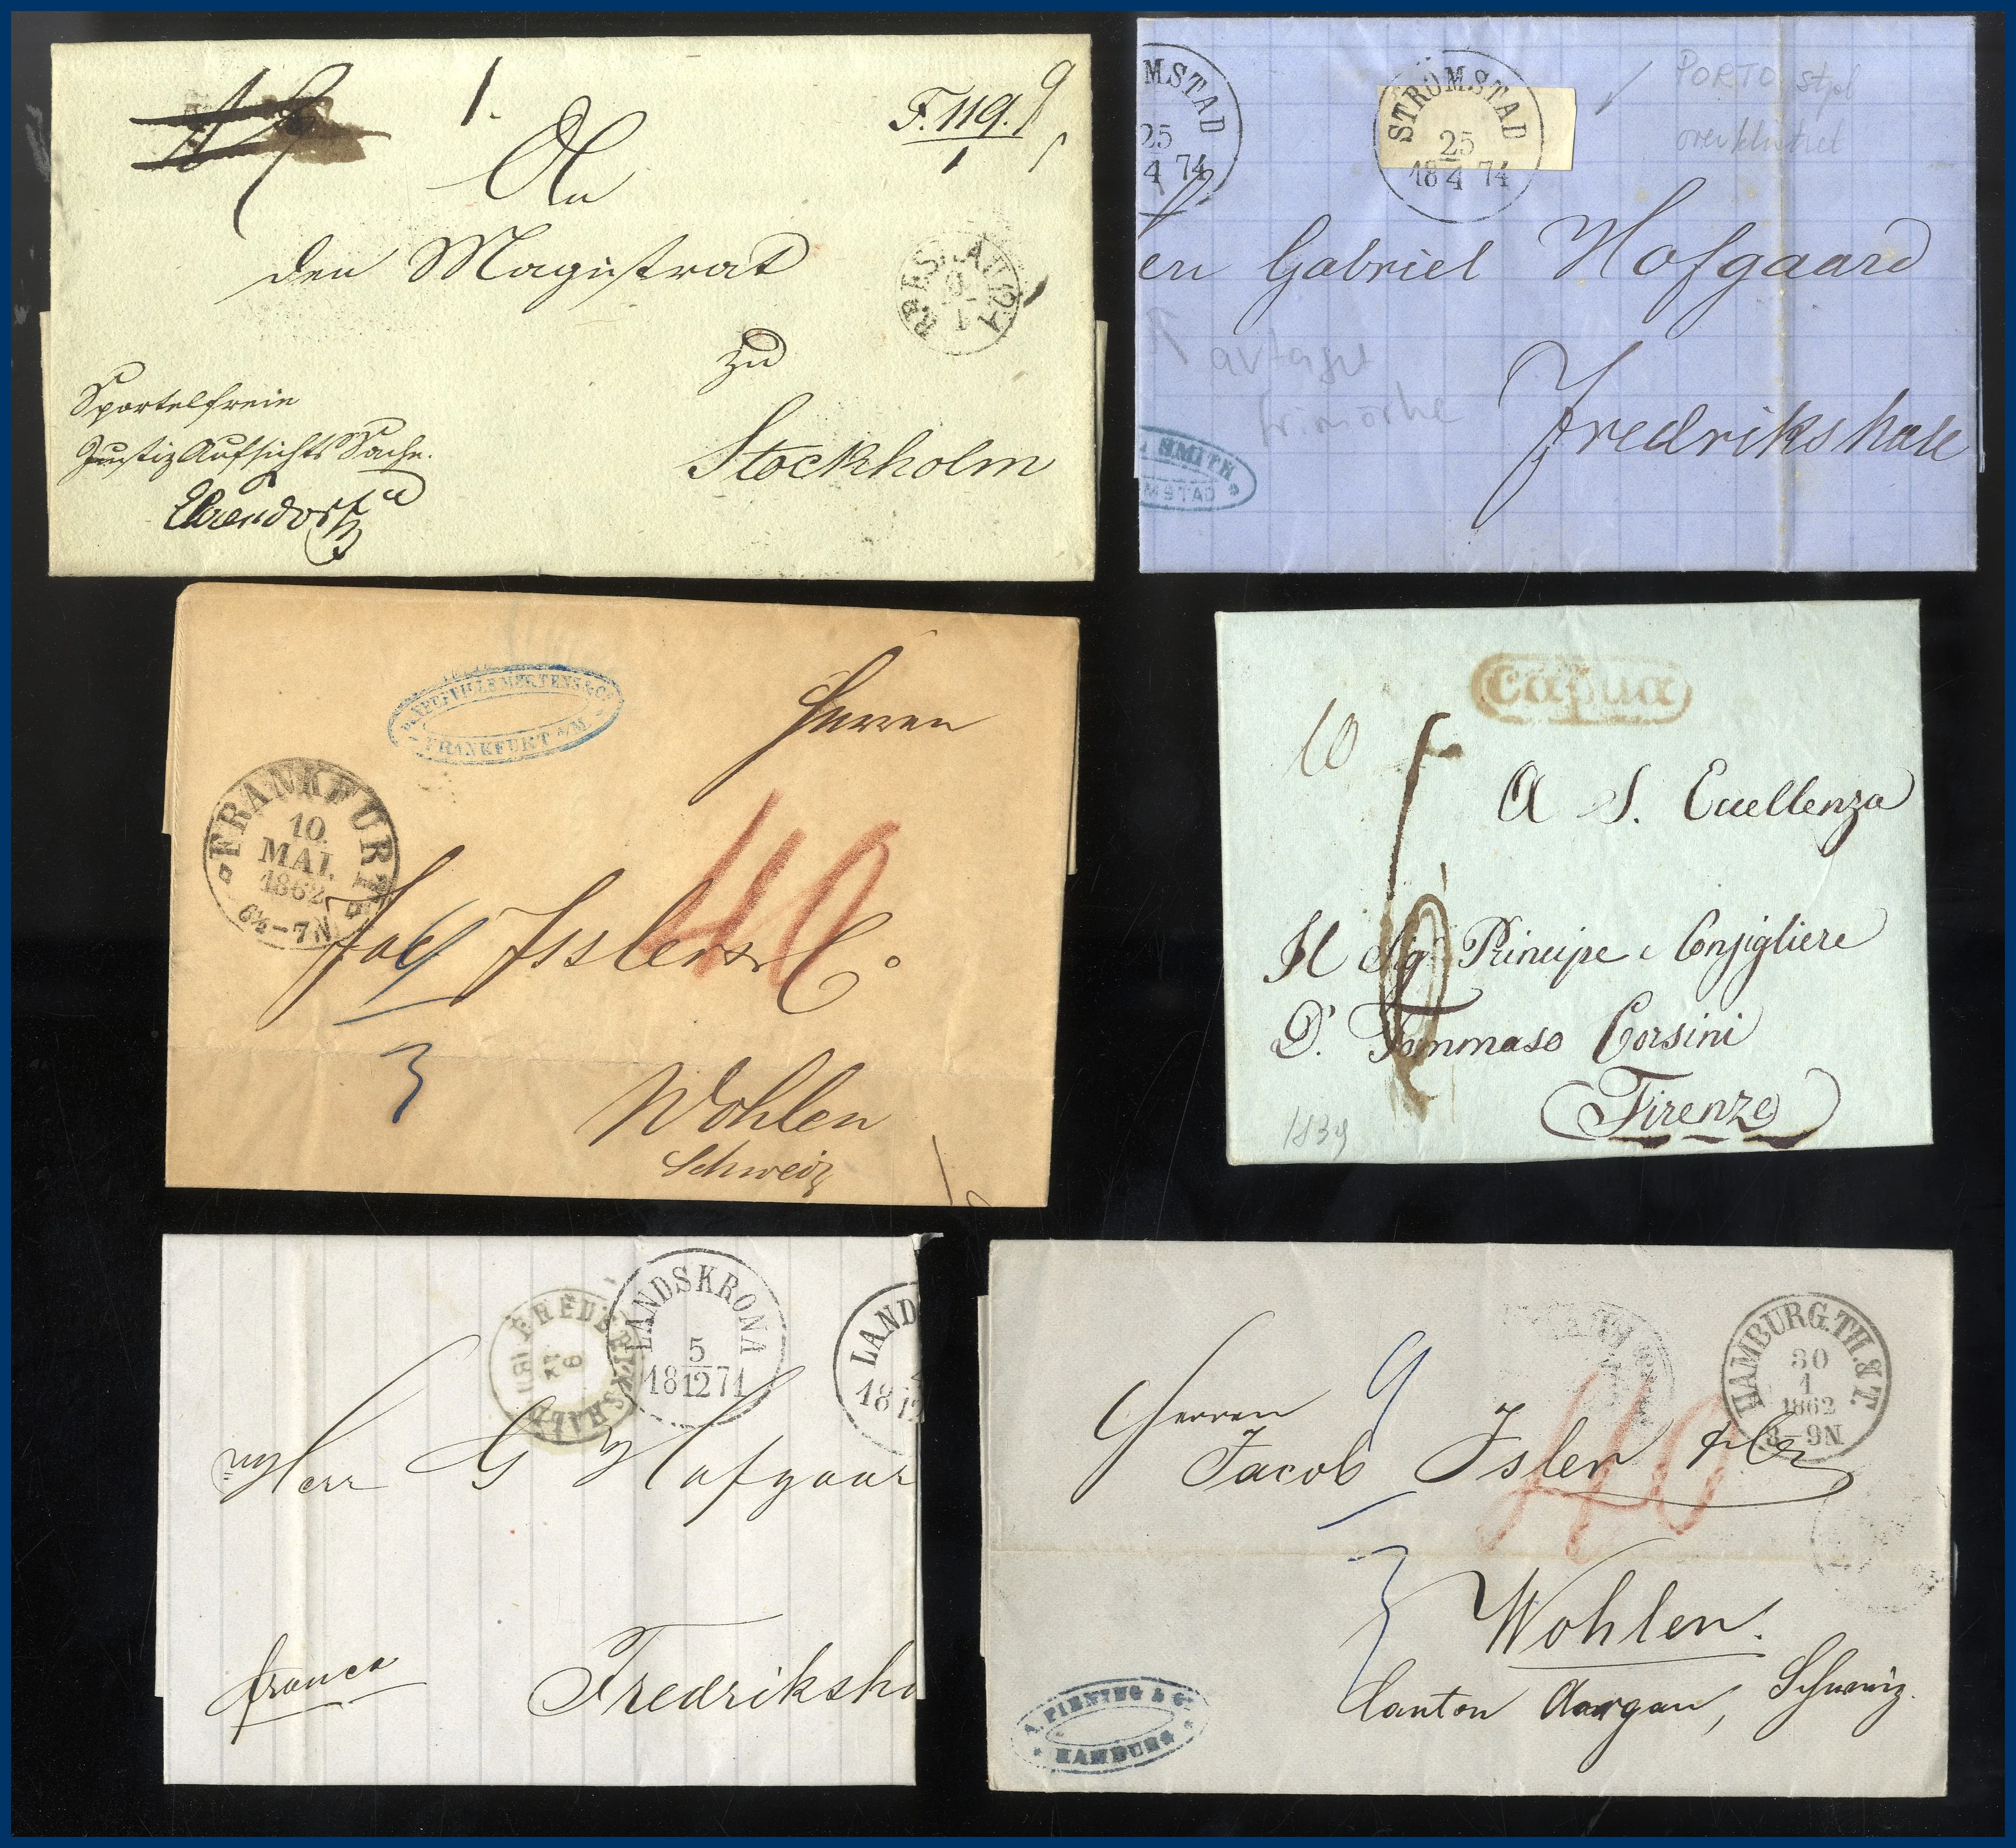 1.
F. 119.
1
An
den Magistrat
zu
Stockholm
BRESLAU
Sportelfreie
Justiz Aufsichts Sache.
MSTAD
25
4 74
STRÖMSTAD
25
18 4 74
PORTO stpl
en Gabriel Hofgaard
Fredrikshall
SMITH
MSTAD
MERTENS & Co
FRANKFURT a/M
Herren
FRANKFURT
10.
MAI.
1862
6½-7N
40
9
3
Jac Isler & Co
Wohlen
Schweiz
capua
10
A S. Eccellenza
Il Sigr Principe e Consigliere
D. Tommaso Corsini
Firenze
1839
FREDERIKSHALD
LANDSKRONA
5
18 12 71
LAND
18 12
Herr G Hofgaar
franco
Fredriksha
HAMBURG.TH.&T.
30
1
1862
8-9N
9
40
3
Herren
Jacob Isler & Co
Wohlen.
Canton Aargau, Schweiz.
A. PIENING & Co
HAMBURG